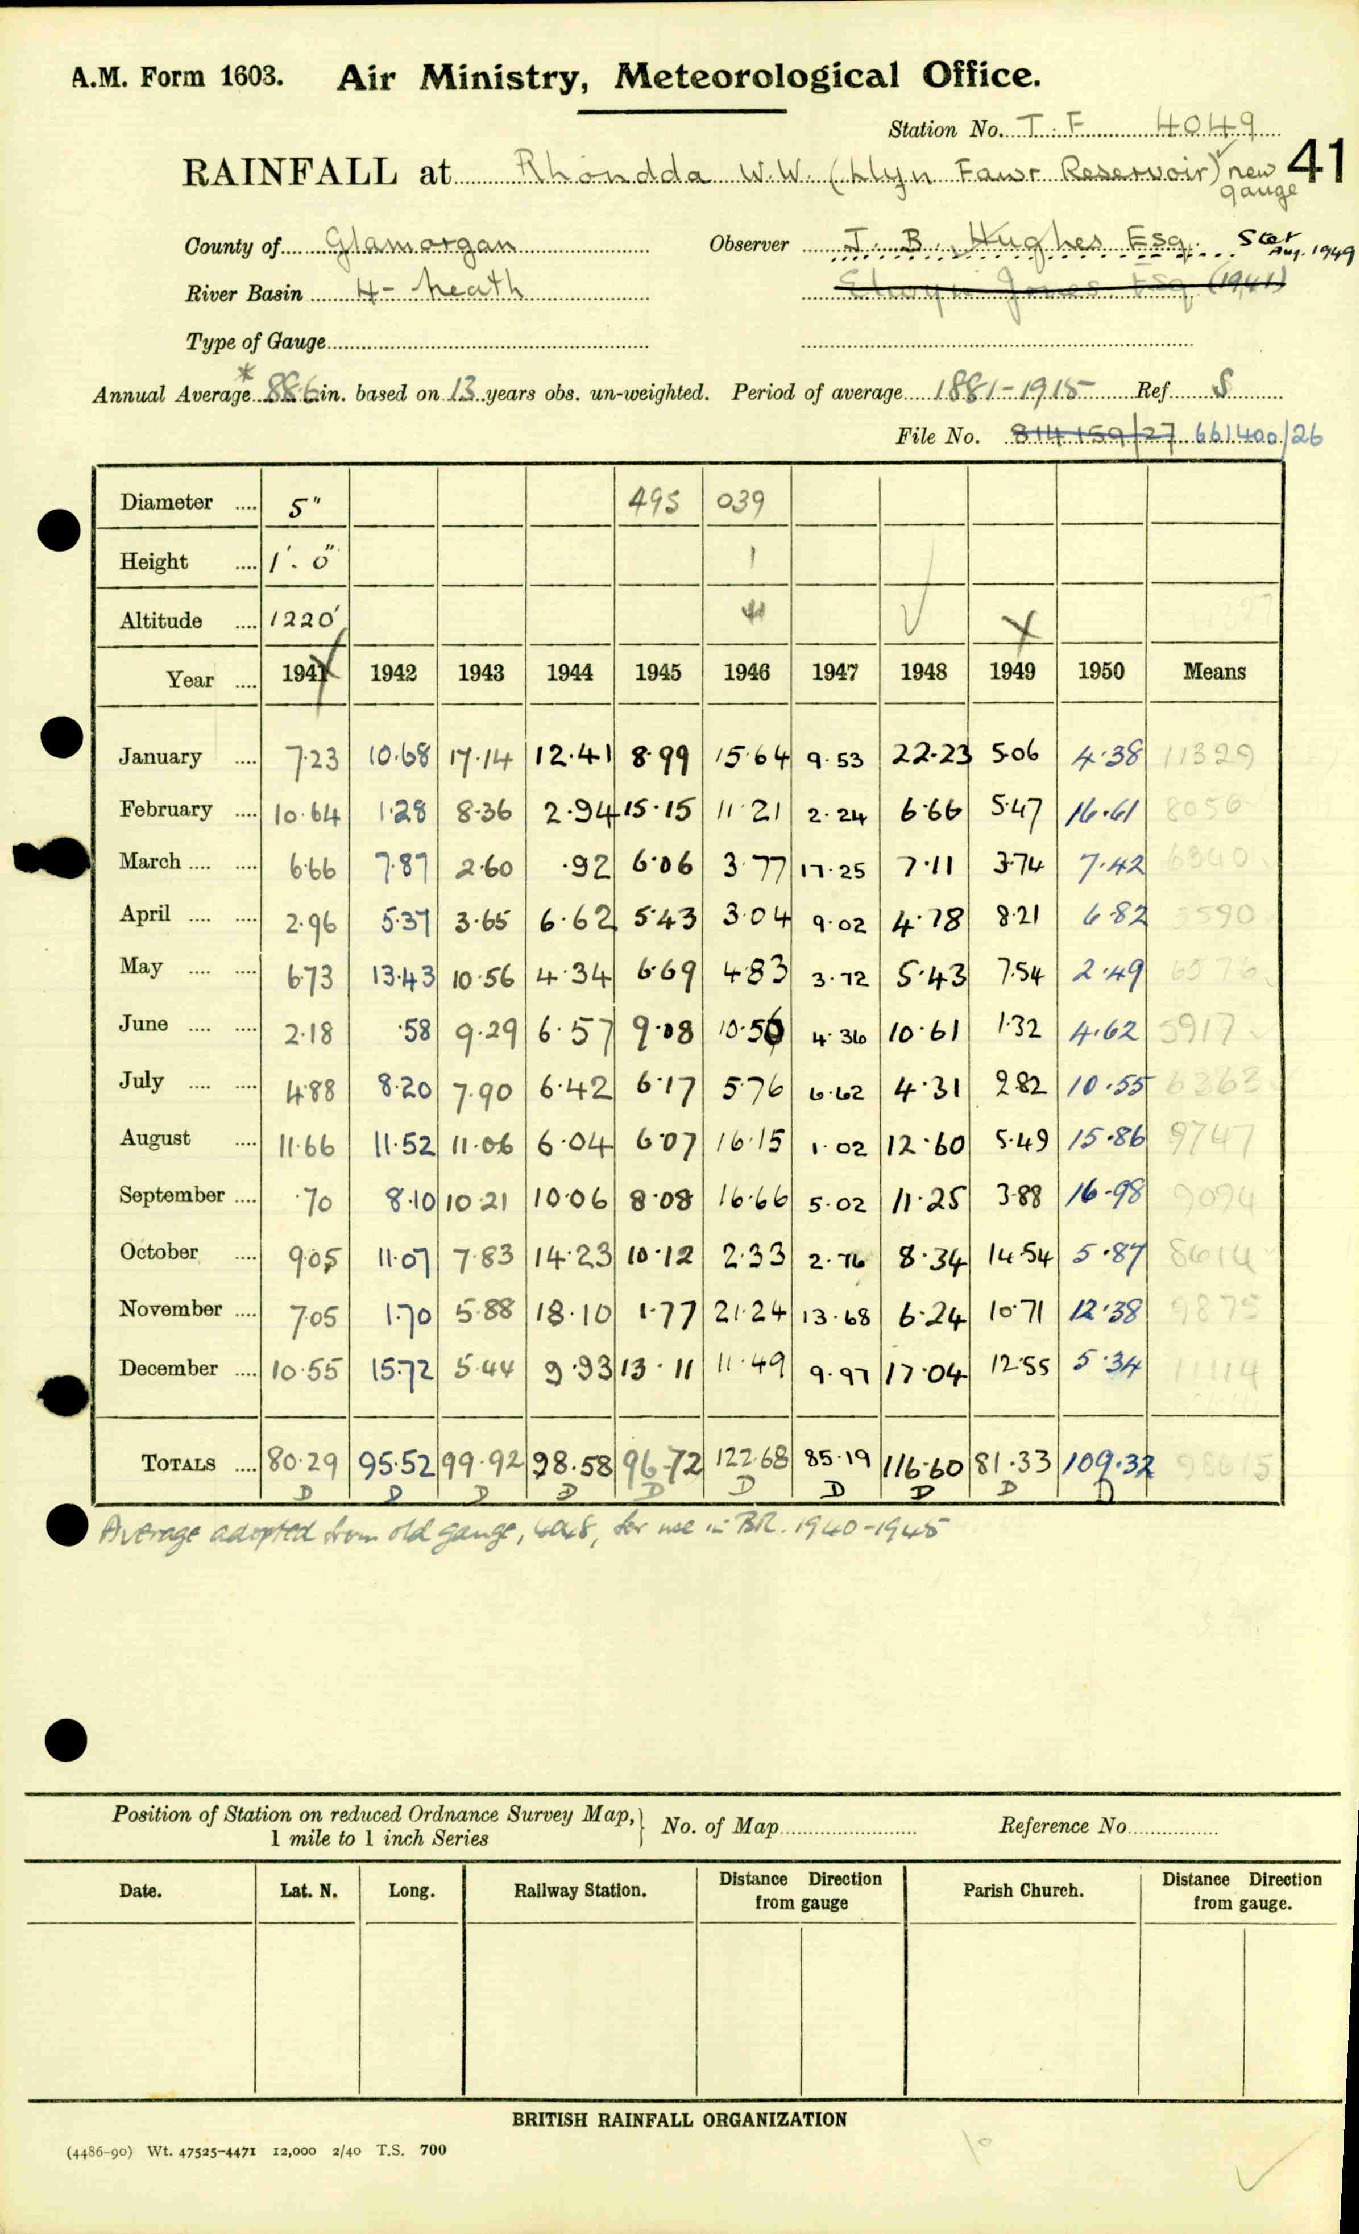 A.M. Form 1603. Air Ministry, Meteorological Office.
Station No. T.F 4049
RAINFALL at Rhondda W.W. (Llyn Fawr Reservoir) new gauge 41
County of Glamorgan Observer J. B. Hughes Esq. Aug. 1949
River Basin 4- Neath Jones Esq (1941)
Type of Gauge
Annual Average * 88.6 in. based on 13 years obs. un-weighted. Period of average 1881-1915 Ref S
File No. 814159/27 661400/26
Diameter .... 5" 495 039
Height .... 1'. 0" 1
Altitude .... 1220'
Year .... 1941 1942 1943 1944 1945 1946 1947 1948 1949 1950 Means
January .... 7.23 10.68 17.14 12.41 8.99 15.64 9.53 22.23 5.06 4.38 11329
February .... 10.64 1.28 8.36 2.94 15.15 11.21 2.24 6.66 5.47 16.61 8056
March .... .... 6.66 7.87 2.60 .92 6.06 3.77 17.25 7.11 3.74 7.42 6340
April .... .... 2.96 5.37 3.65 6.62 5.43 3.04 9.02 4.78 8.21 6.82 5590
May .... .... 6.73 13.43 10.56 4.34 6.69 4.83 3.72 5.43 7.54 2.49 6576
June .... .... 2.18 .58 9.29 6.57 9.08 10.56 4.36 10.61 1.32 4.62 5917
July .... .... 4.88 8.20 7.90 6.42 6.17 5.76 6.62 4.31 2.82 10.55 6363
August .... 11.66 11.52 11.06 6.04 6.07 16.15 1.02 12.60 5.49 15.86 9747
September .... .70 8.10 10.21 10.06 8.08 16.66 5.02 11.25 3.88 16.98 9094
October .... 9.05 11.07 7.83 14.23 10.12 2.33 2.76 8.34 14.54 5.87 8614
November .... 7.05 1.70 5.88 18.10 1.77 21.24 13.68 6.24 10.71 12.38 9875
December .... 10.55 15.72 5.44 9.93 13.11 11.49 9.97 17.04 12.55 5.34 11114
TOTALS .... 80.29 95.52 99.92 98.58 96.72 122.68 85.19 116.60 81.33 109.32 98615
D D D D D D D D D D
Average adopted from old gauge, 4048, for use in B.R. 1940-1945
Position of Station on reduced Ordnance Survey Map, 1 mile to 1 inch Series } No. of Map Reference No.
Date. Lat. N. Long. Railway Station. Distance Direction from gauge Parish Church. Distance Direction from gauge.
BRITISH RAINFALL ORGANIZATION
(4486-90) Wt. 47525-4471 12,000 2/40 T.S. 700
10